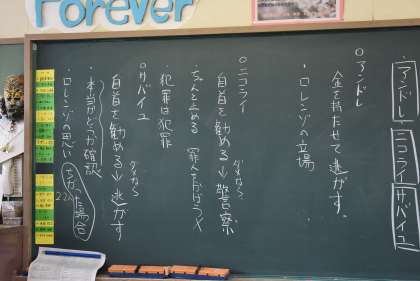 Forever
アンドレ
ニコライ
サバイユ
○アンドレ
金を持たせて逃がす。
・ロレンゾの立場
○ニコライ
自首を勧める→警察
ダメなら
・ちゃんと止める
罪人をかばうⅩ
犯罪は犯罪
○サバイユ
自首を勧める→逃がす
ダメなら
・本当かどうか確認
・ロレンゾの思い
た場合